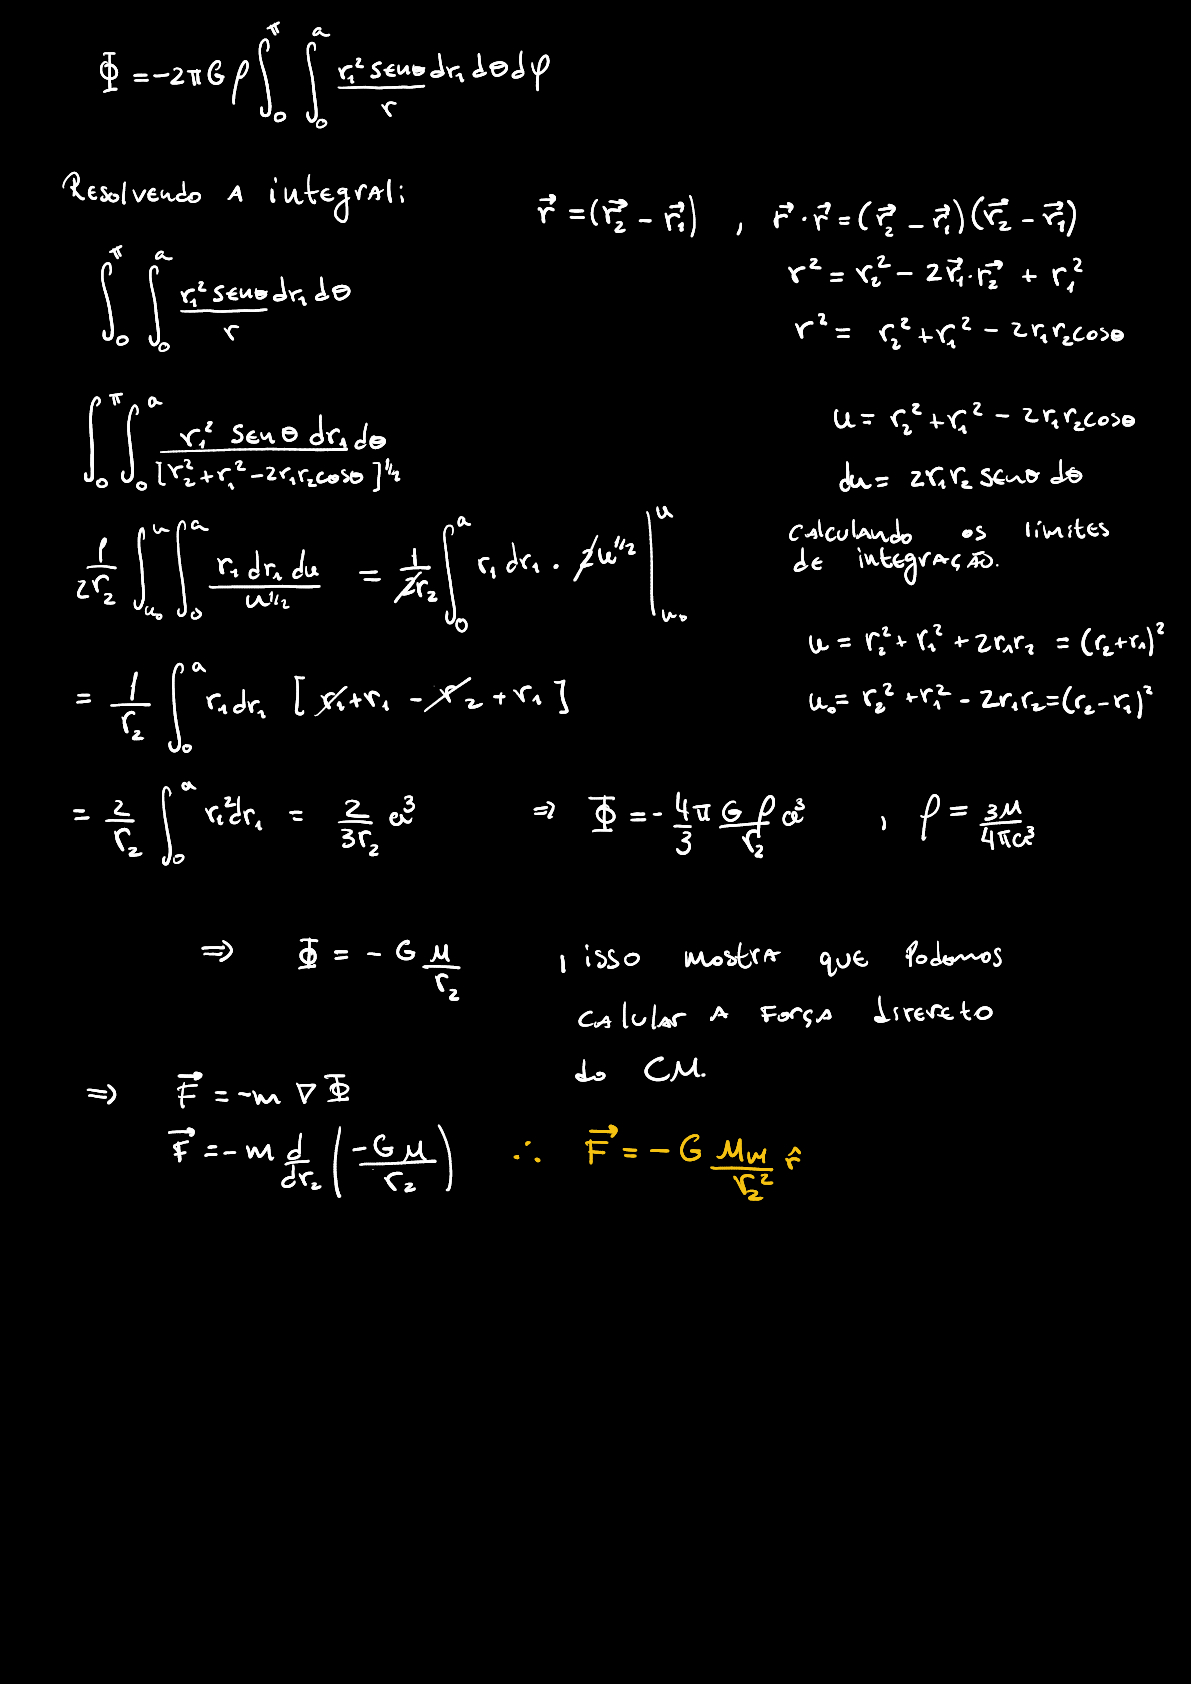 Φ = -2πGρ ∫₀^π ∫₀^a r₁² senθ dr₁ dθ dφ / r
Resolvendo A integral:
r⃗ = (r⃗₂ - r⃗₁) , r⃗·r⃗ = (r⃗₂ - r⃗₁)(r⃗₂ - r⃗₁)
∫₀^π ∫₀^a r₁² senθ dr₁ dθ / r
r² = r₂² - 2r⃗₁·r⃗₂ + r₁²
r² = r₂² + r₁² - 2r₁r₂cosθ
∫₀^π ∫₀^a r₁² senθ dr₁ dθ / [r₂² + r₁² - 2r₁r₂cosθ]^1/2
u = r₂² + r₁² - 2r₁r₂cosθ
du = 2r₁r₂ senθ dθ
1/2r₂ ∫_u₀^u ∫₀^a r₁ dr₁ du / u^1/2 = 1/2r₂ ∫₀^a r₁ dr₁ · 2u^1/2 |_u₀^u
calculando os limites
de integração.
u = r₂² + r₁² + 2r₁r₂ = (r₂+r₁)²
= 1/r₂ ∫₀^a r₁ dr₁ [r₂ + r₁ - r₂ + r₁]
u₀ = r₂² + r₁² - 2r₁r₂ = (r₂-r₁)²
= 2/r₂ ∫₀^a r₁² dr₁ = 2/3r₂ a³ ⇒ Φ = -4/3 π Gρ/r₂ a³ , ρ = 3M/4πa³
⇒ Φ = -G M/r₂ , isso mostra que Podemos
calular A Força direreto
do CM.
⇒ F⃗ = -m∇Φ
F⃗ = -m d/dr₂ (-GM/r₂) ∴ F⃗ = -G Mm/r₂² r̂